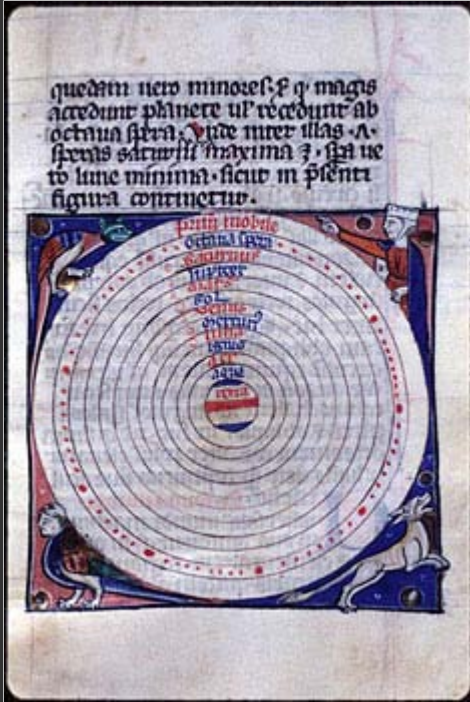 quedam uero minores. ⁊ q' magis
accedunt planete ul' recedunt ab
octaua spera. Vnde inter illas .
speras saturni maxima ⁊ . spa ue
ro lune minima. sicut in p̄senti
figura continetur.
prim̄ mobile
octaua spera
saturnus
iupiter
mars
sol
uenus
mercuri⁹
luna
ignis
aer
aqua
terra